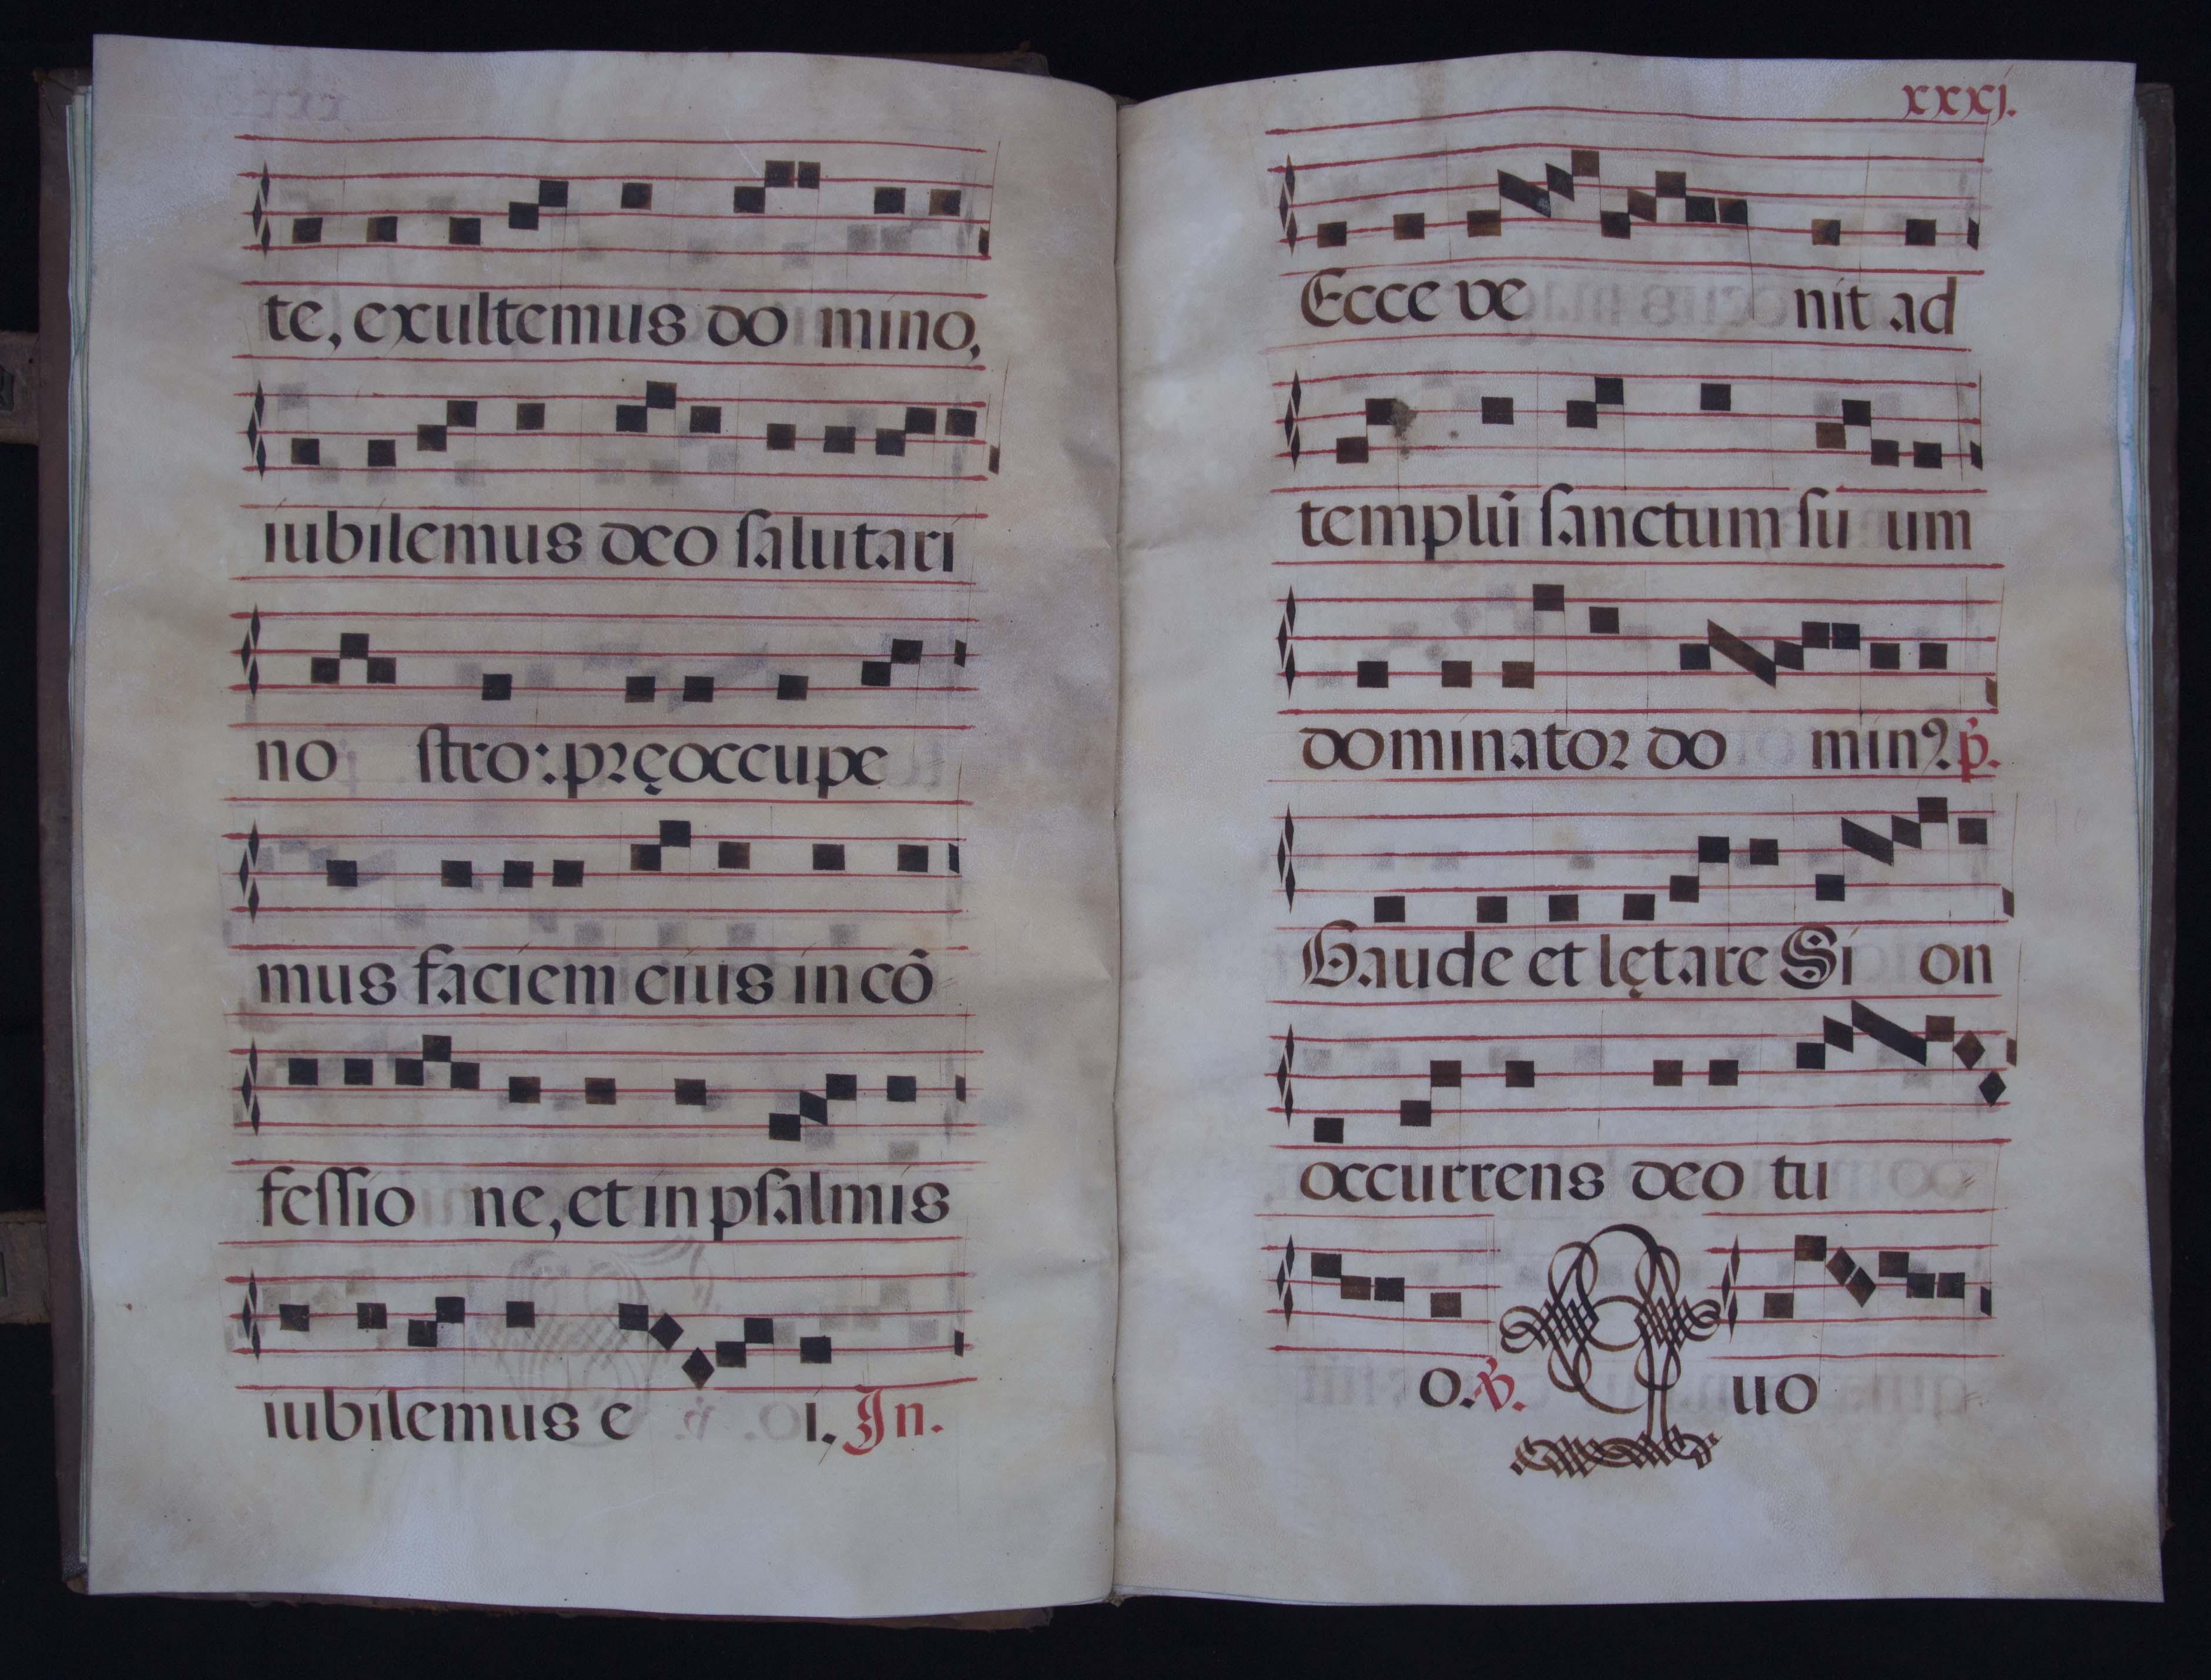 te, exultemus do mino,
iubilemus deo ſalutari
no ſtro: pręoccupe
mus faciem eius in cō
feſſio ne, et in pſalmis
iubilemus e i, In.
xxxj.
Ecce ve nit ad
templū ſanctum ſu um
dominator do minꝰ. p̄.
Gaude et lętare Si on
occurrens deo tu
o. ℣. Quo